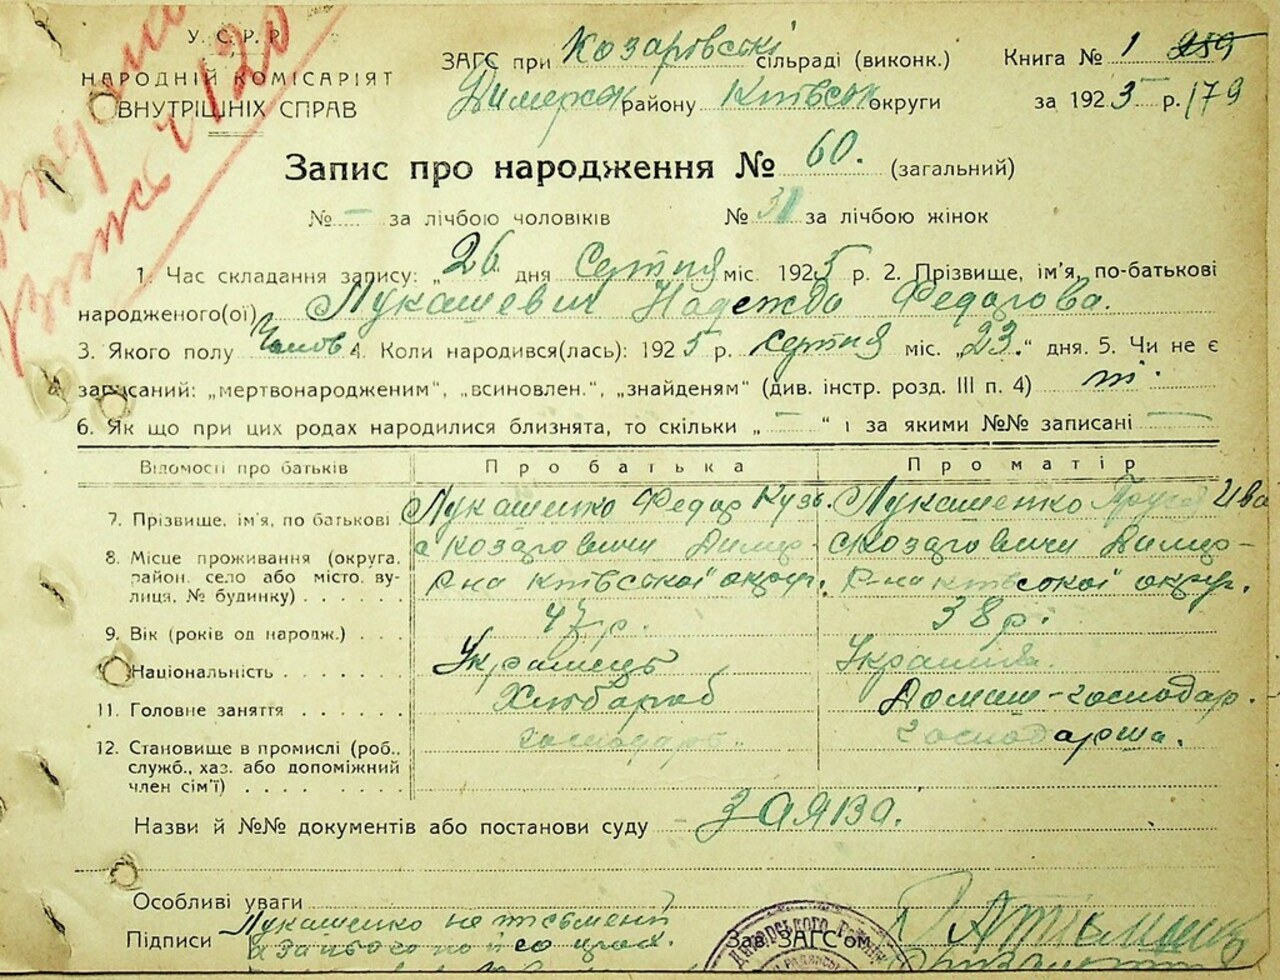 У. С. Р. Р.
НАРОДНІЙ КОМІСАРІЯТ
ВНУТРІШНІХ СПРАВ
ЗАГС при Козаровській сільраді (виконк.) Книга № 1 259
Димерськ району Київськ округи за 1925 р. 179
Запис про народження № 60. (загальний)
№ — за лічбою чоловіків № 31 за лічбою жінок
1. Час складання запису: „26“ дня Серпня міс. 1925 р. 2. Прізвище, ім’я, по-батькові
народженого(ої) Лукашевич Надежда Федорова.
3. Якого полу 4. Коли народився(лась): 1925 р. серпня міс. „23.“ дня. 5. Чи не є
записаний: „мертвонародженим“, „всиновлен.“, „знайденям“ (див. інстр. розд. III п. 4) ні.
6. Як що при цих родах народилися близнята, то скільки „—“ і за якими №№ записані —
Відомості про батьків Про батька Про матір
7. Прізвище, ім’я, по батькові Лукашенко Федор Кузь. Лукашенко Ива
8. Місце проживання (округа, район, село або місто, вулиця, № будинку) с Козаровичи Димер- с Козаровичи Димер-
р-на Київської округ. р-на Київської округ.
9. Вік (років од народж.) 47 р. 38 р.
10. Національність Украинець Украинка.
11. Головне заняття Хлібороб Домаш-господар.
12. Становище в промислі (роб., служб., хаз. або допоміжний член сім’ї) господарь. господарша.
Назви й №№ документів або постанови суду заява.
Особливі уваги
Підписи Лукашенко не письмений
а за нього по його
Зав. ЗАГС’ом